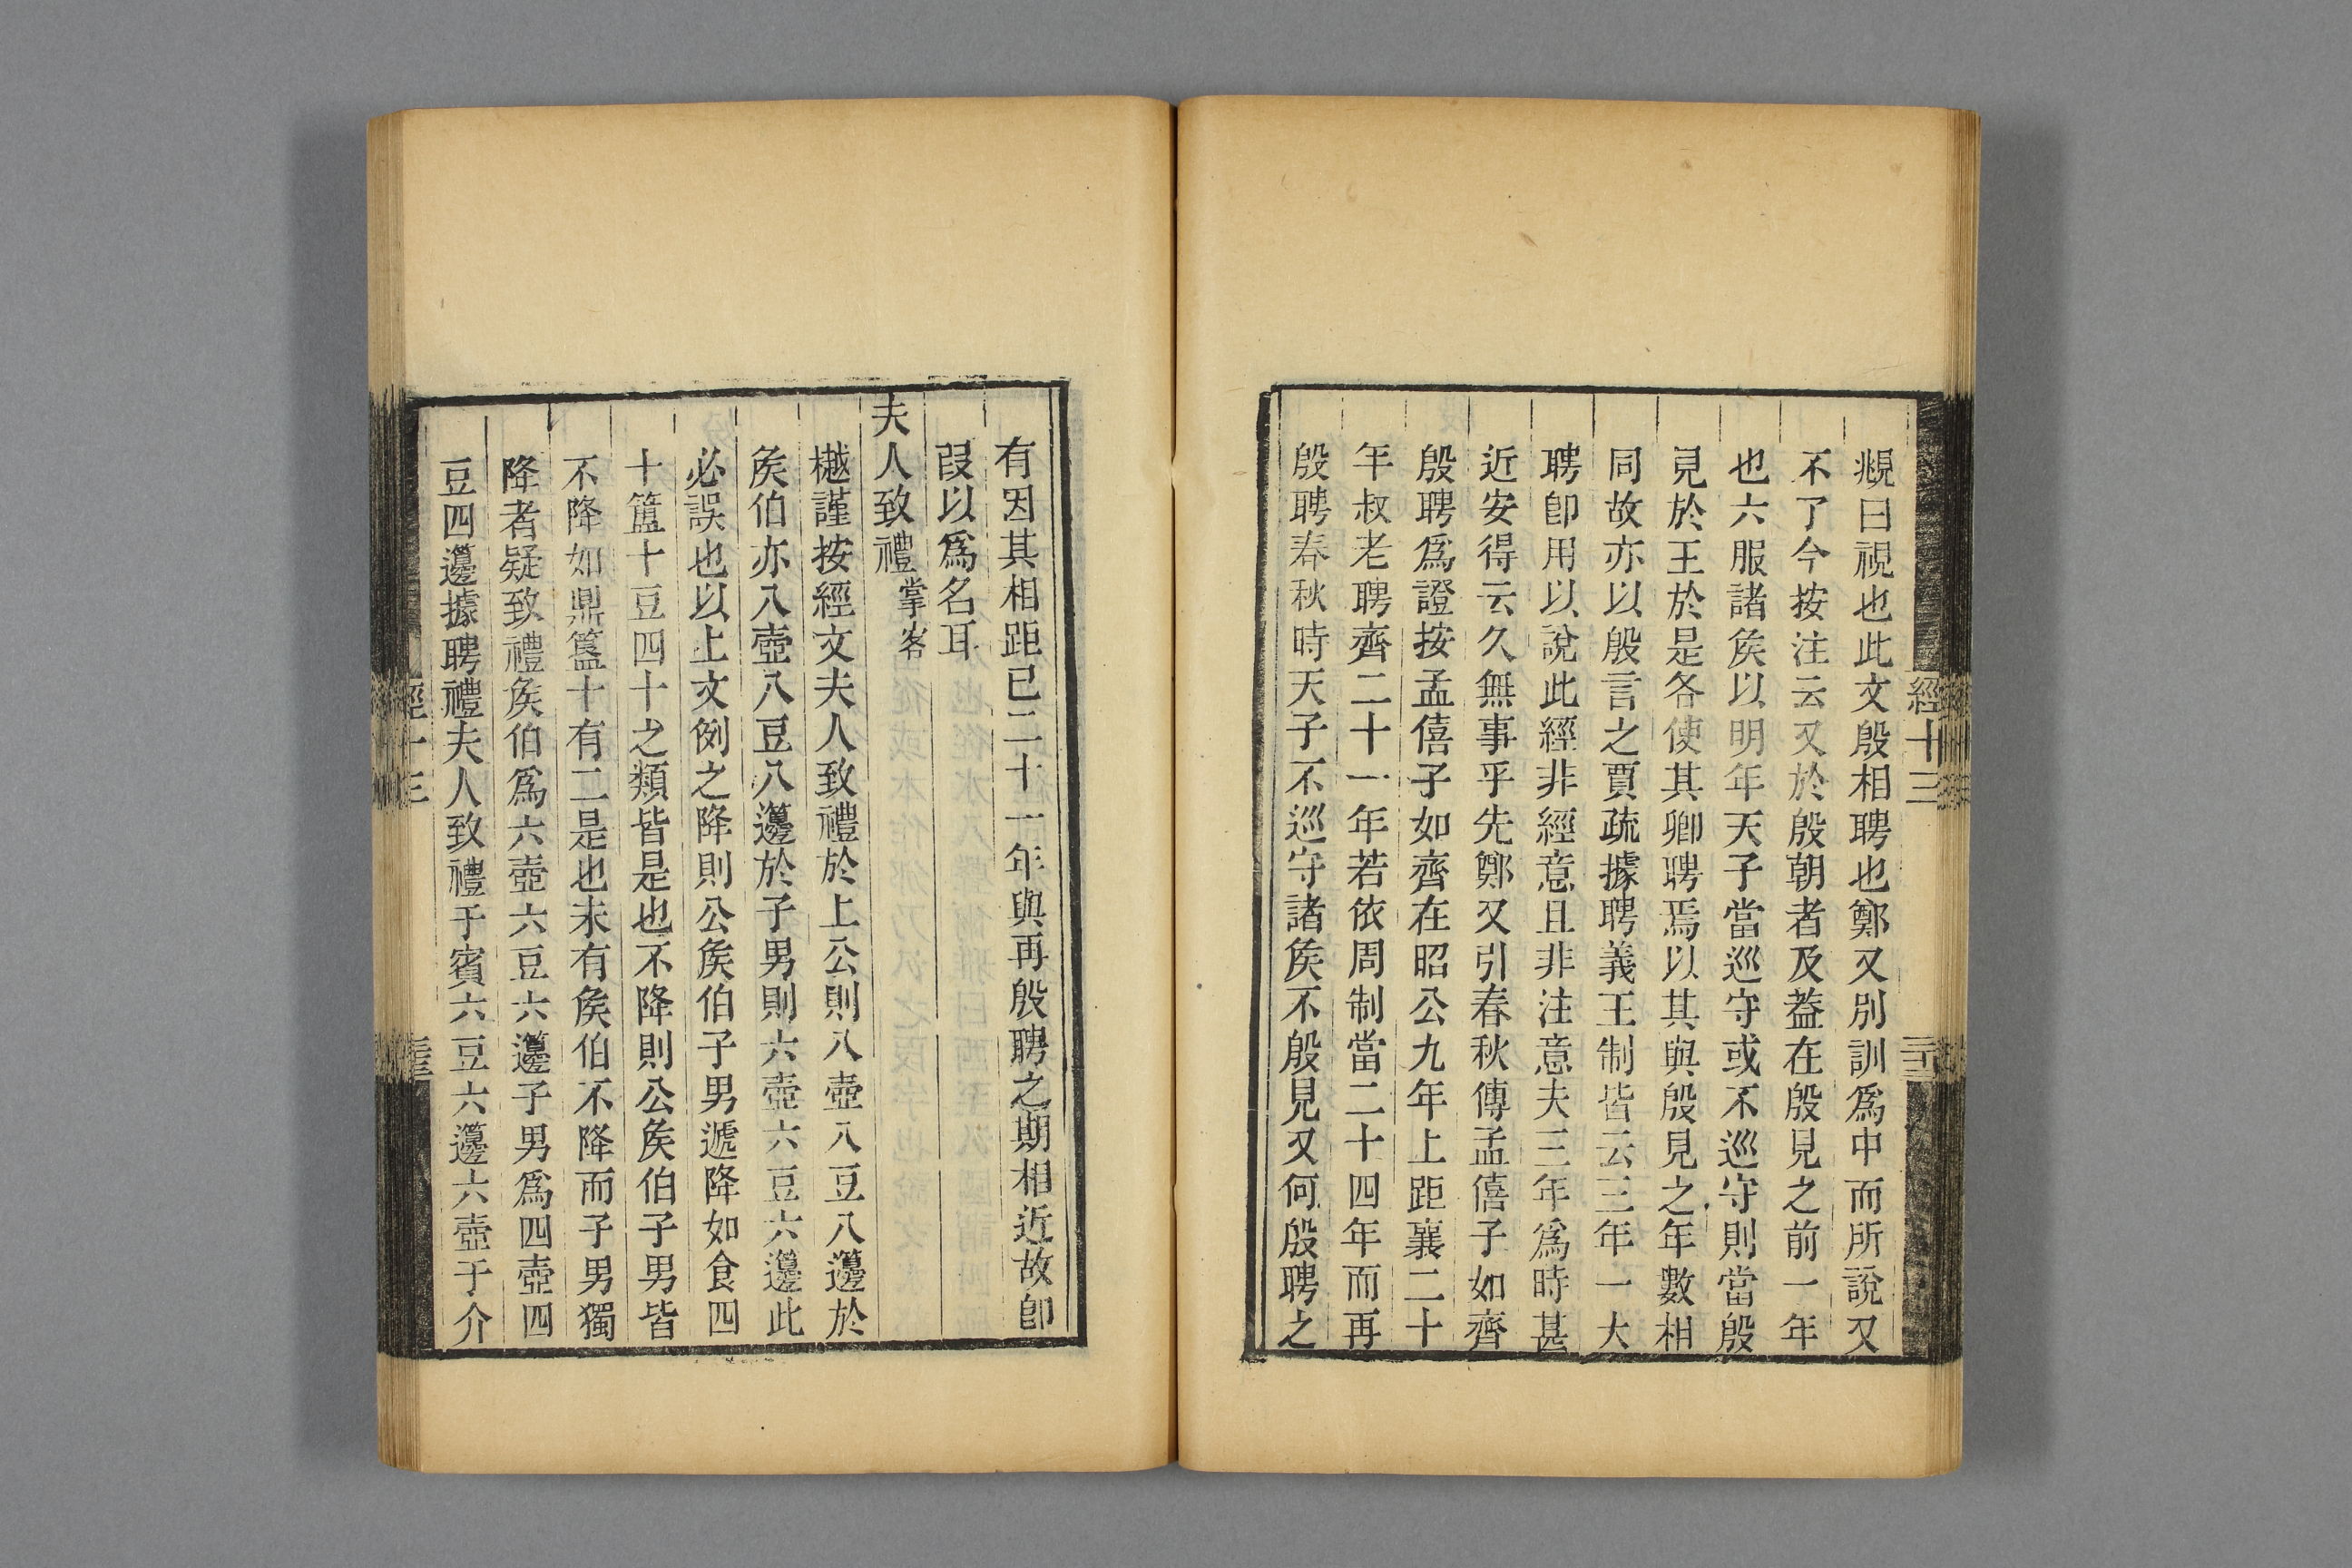 覜曰視也此文殷相聘也鄭又別訓爲中而所說又
不了今按注云又於殷朝者及葢在殷見之前一年
也六服諸矦以明年天子當巡守或不巡守則當殷
見於王於是各使其卿聘焉以其與殷見之年數相
同故亦以殷言之賈疏據聘義王制皆云三年一大
聘卽用以說此經非經意且非注意夫三年爲時甚
近安得云久無事乎先鄭又引春秋傳孟僖子如齊
殷聘爲證按孟僖子如齊在昭公九年上距襄二十
年叔老聘齊二十一年若依周制當二十四年而再
殷聘春秋時天子不巡守諸矦不殷見又何殷聘之
有因其相距已二十一年與再殷聘之期相近故卽
叚以爲名耳
夫人致禮掌客
樾謹按經文夫人致禮於上公則八壺八豆八籩於
矦伯亦八壺八豆八籩於子男則六壺六豆六籩此
必誤也以上文例之降則公矦伯子男遞降如食四
十簠十豆四十之類皆是也不降則公矦伯子男皆
不降如鼎簋十有二是也未有矦伯不降而子男獨
降者疑致禮矦伯爲六壺六豆六籩子男爲四壺四
豆四籩據聘禮夫人致禮于賓六豆六籩六壺于介
經十三